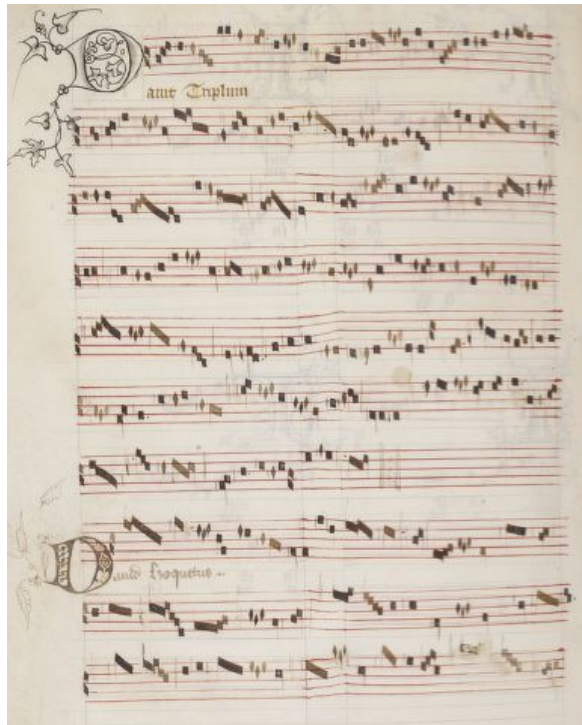 Dauit Triplum
Dauid hoquetus